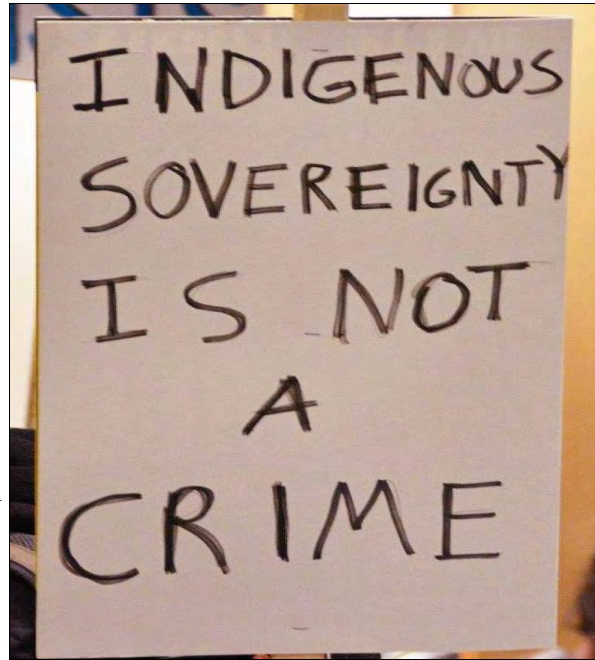 INDIGENOUS
SOVEREIGNTY
IS NOT
A
CRIME